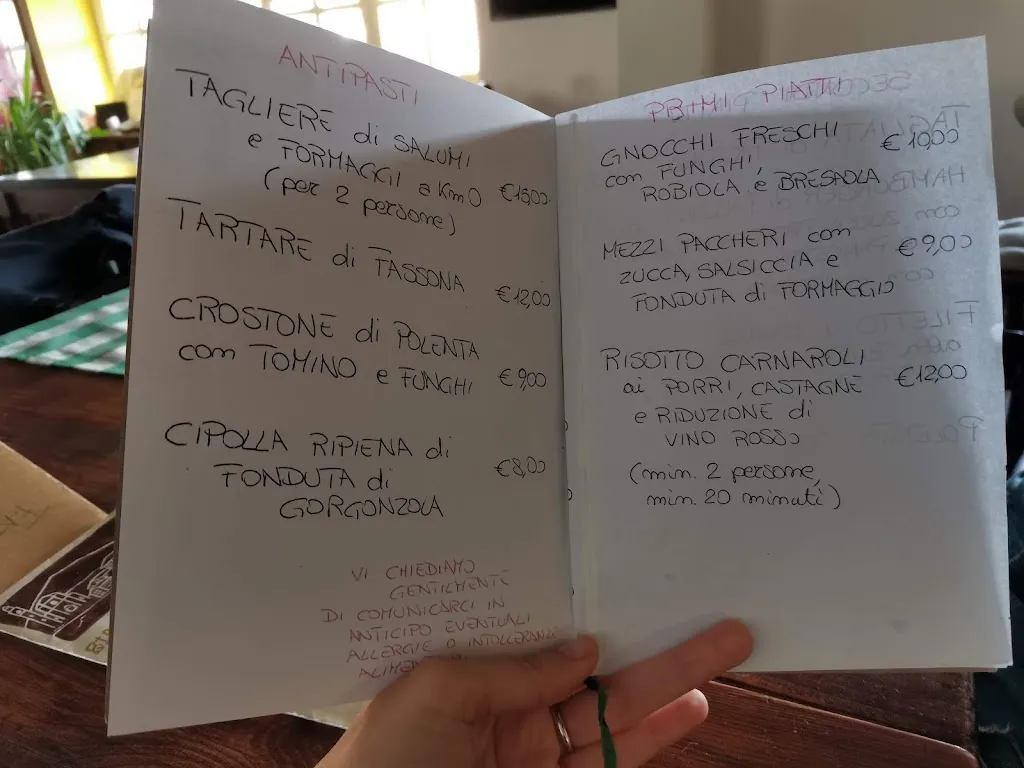 ANTIPASTI
TAGLIERE di SALUMI
e FORMAGGI a Km0
(per 2 persone)
€16,00
TARTARE di FASSONA
€12,00
CROSTONE di POLENTA
con TOMINO e FUNGHI
€9,00
CIPOLLA RIPIENA di
FONDUTA di
GORGONZOLA
€8,00
VI CHIEDIAMO
GENTILMENTE
DI COMUNICARCI IN
ANTICIPO EVENTUALI
ALLERGIE O INTOLLERANZE
PRIMI PIATTI
GNOCCHI FRESCHI
con FUNGHI,
ROBIOLA e BRESAOLA
€10,00
MEZZI PACCHERI con
ZUCCA, SALSICCIA e
FONDUTA di FORMAGGIO
€9,00
RISOTTO CARNAROLI
ai PORRI, CASTAGNE
e RIDUZIONE di
VINO ROSSO
€12,00
(min. 2 persone,
min. 20 minuti)